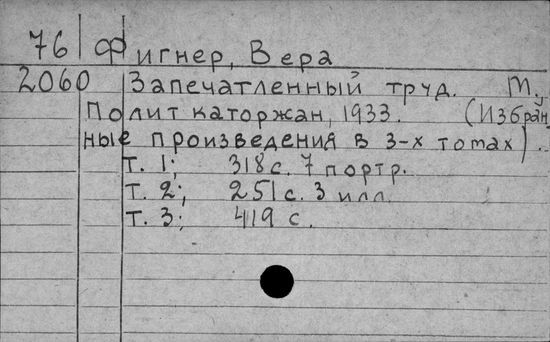 76 Фигнер, Вера
2060 Запечатленный труд. М.,
Полит каторжан, 1933. (Избран
ные произведения в 3-х томах).
Т. 1; 318 с. 7 портр.
Т. 2; 251 с. 3 илл.
Т. 3; 419 с.